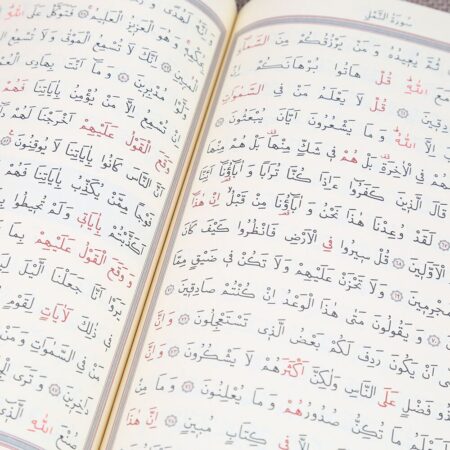 سُورَةُ النَّمْلِ
ثُمَّ يُعِيدُهُ وَمَنْ يَرْزُقُكُمْ مِنَ السَّمَاءِ
اللّٰهِ قُلْ هَاتُوا بُرْهَانَكُمْ اِنْ
قُلْ لَا يَعْلَمُ مَنْ فِي السَّمٰوَاتِ
اِلَّا اللّٰهُ وَمَا يَشْعُرُونَ اَيَّانَ يُبْعَثُونَ
فِي الْاٰخِرَةِ بَلْ هُمْ فِي شَكٍّ مِنْهَا بَلْ هُمْ
قَالَ الَّذِينَ كَفَرُوا ءَاِذَا كُنَّا تُرَابًا وَاٰبَاؤُنَا
لَقَدْ وُعِدْنَا هٰذَا نَحْنُ وَاٰبَاؤُنَا مِنْ قَبْلُ اِنْ هٰذَا
الْاَوَّلِينَ ﴿٦٨﴾ قُلْ سِيرُوا فِي الْاَرْضِ فَانْظُرُوا كَيْفَ كَانَ
﴿٦٩﴾ وَلَا تَحْزَنْ عَلَيْهِمْ وَلَا تَكُنْ فِي ضَيْقٍ مِمَّا
﴿٧٠﴾ وَيَقُولُونَ مَتٰى هٰذَا الْوَعْدُ اِنْ كُنْتُمْ صَادِقِينَ
اَنْ يَكُونَ رَدِفَ لَكُمْ بَعْضُ الَّذِي تَسْتَعْجِلُونَ ﴿٧٢﴾ وَاِنَّ
فَضْلٍ عَلَى النَّاسِ وَلٰكِنَّ اَكْثَرَهُمْ لَا يَشْكُرُونَ ﴿٧٣﴾ وَاِنَّ
مَا تُكِنُّ صُدُورُهُمْ وَمَا يُعْلِنُونَ ﴿٧٤﴾ وَمَا
اِلَّا فِي كِتَابٍ مُبِينٍ ﴿٧٥﴾ اِنَّ هٰذَا
وَهُوَ الْعَزِيزُ الْعَلِيمُ ﴿٧٨﴾ فَتَوَكَّلْ عَلَى اللّٰهِ
اِنَّكَ لَا تُسْمِعُ الْمَوْتٰى وَلَا تُسْمِعُ
مُدْبِرِينَ ﴿٨٠﴾ وَمَا اَنْتَ بِهَادِي الْعُمْيِ
تُسْمِعُ اِلَّا مَنْ يُؤْمِنُ بِاٰيَاتِنَا فَهُمْ
وَقَعَ الْقَوْلُ عَلَيْهِمْ اَخْرَجْنَا لَهُمْ
اَنَّ النَّاسَ كَانُوا بِاٰيَاتِنَا لَا يُوقِنُونَ
فَوْجًا مِمَّنْ يُكَذِّبُ بِاٰيَاتِنَا فَهُمْ
اَكَذَّبْتُمْ بِاٰيَاتِي وَلَمْ تُحِيطُوا
وَوَقَعَ الْقَوْلُ عَلَيْهِمْ بِمَا
يَرَوْا اَنَّا جَعَلْنَا الَّيْلَ
فِي ذٰلِكَ لَاٰيَاتٍ لِقَوْمٍ
مَنْ فِي السَّمٰوَاتِ وَمَنْ
دَاخِرِينَ ﴿٨٧﴾ وَتَرَى
صُنْعَ اللّٰهِ الَّذِي